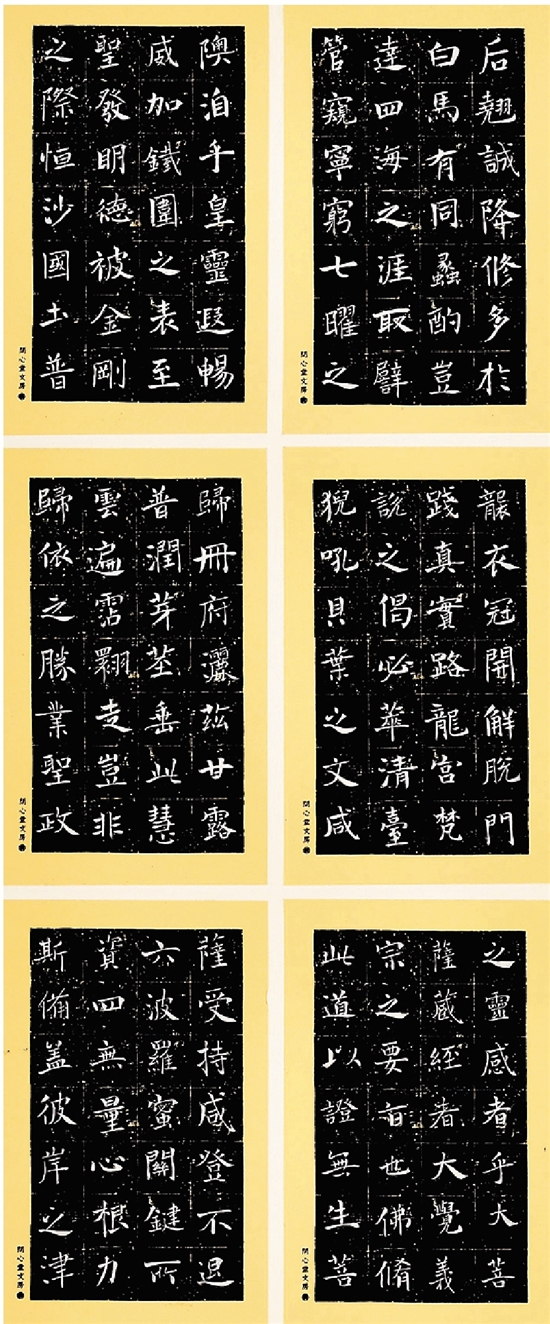 后翹誠降修多於
白馬有同蠡酌豈
達四海之涯取譬
管窺寧窮七曜之
隩洎乎皇靈遐暢
威加鐵圍之表至
聖發明德被金剛
之際恒沙國土普
襲衣冠開解脫門
踐真實路龍宮梵
說之偈必萃清臺
猊吼貝葉之文咸
歸冊府灑茲甘露
普潤芽莖垂此慧
雲遍霑翾走豈非
歸依之勝業聖政
之靈感者乎大菩
薩藏經者大覺義
宗之要旨也佛脩
此道以證無生菩
薩受持咸登不退
六波羅蜜關鍵所
資四無量心根力
斯備盖彼岸之津